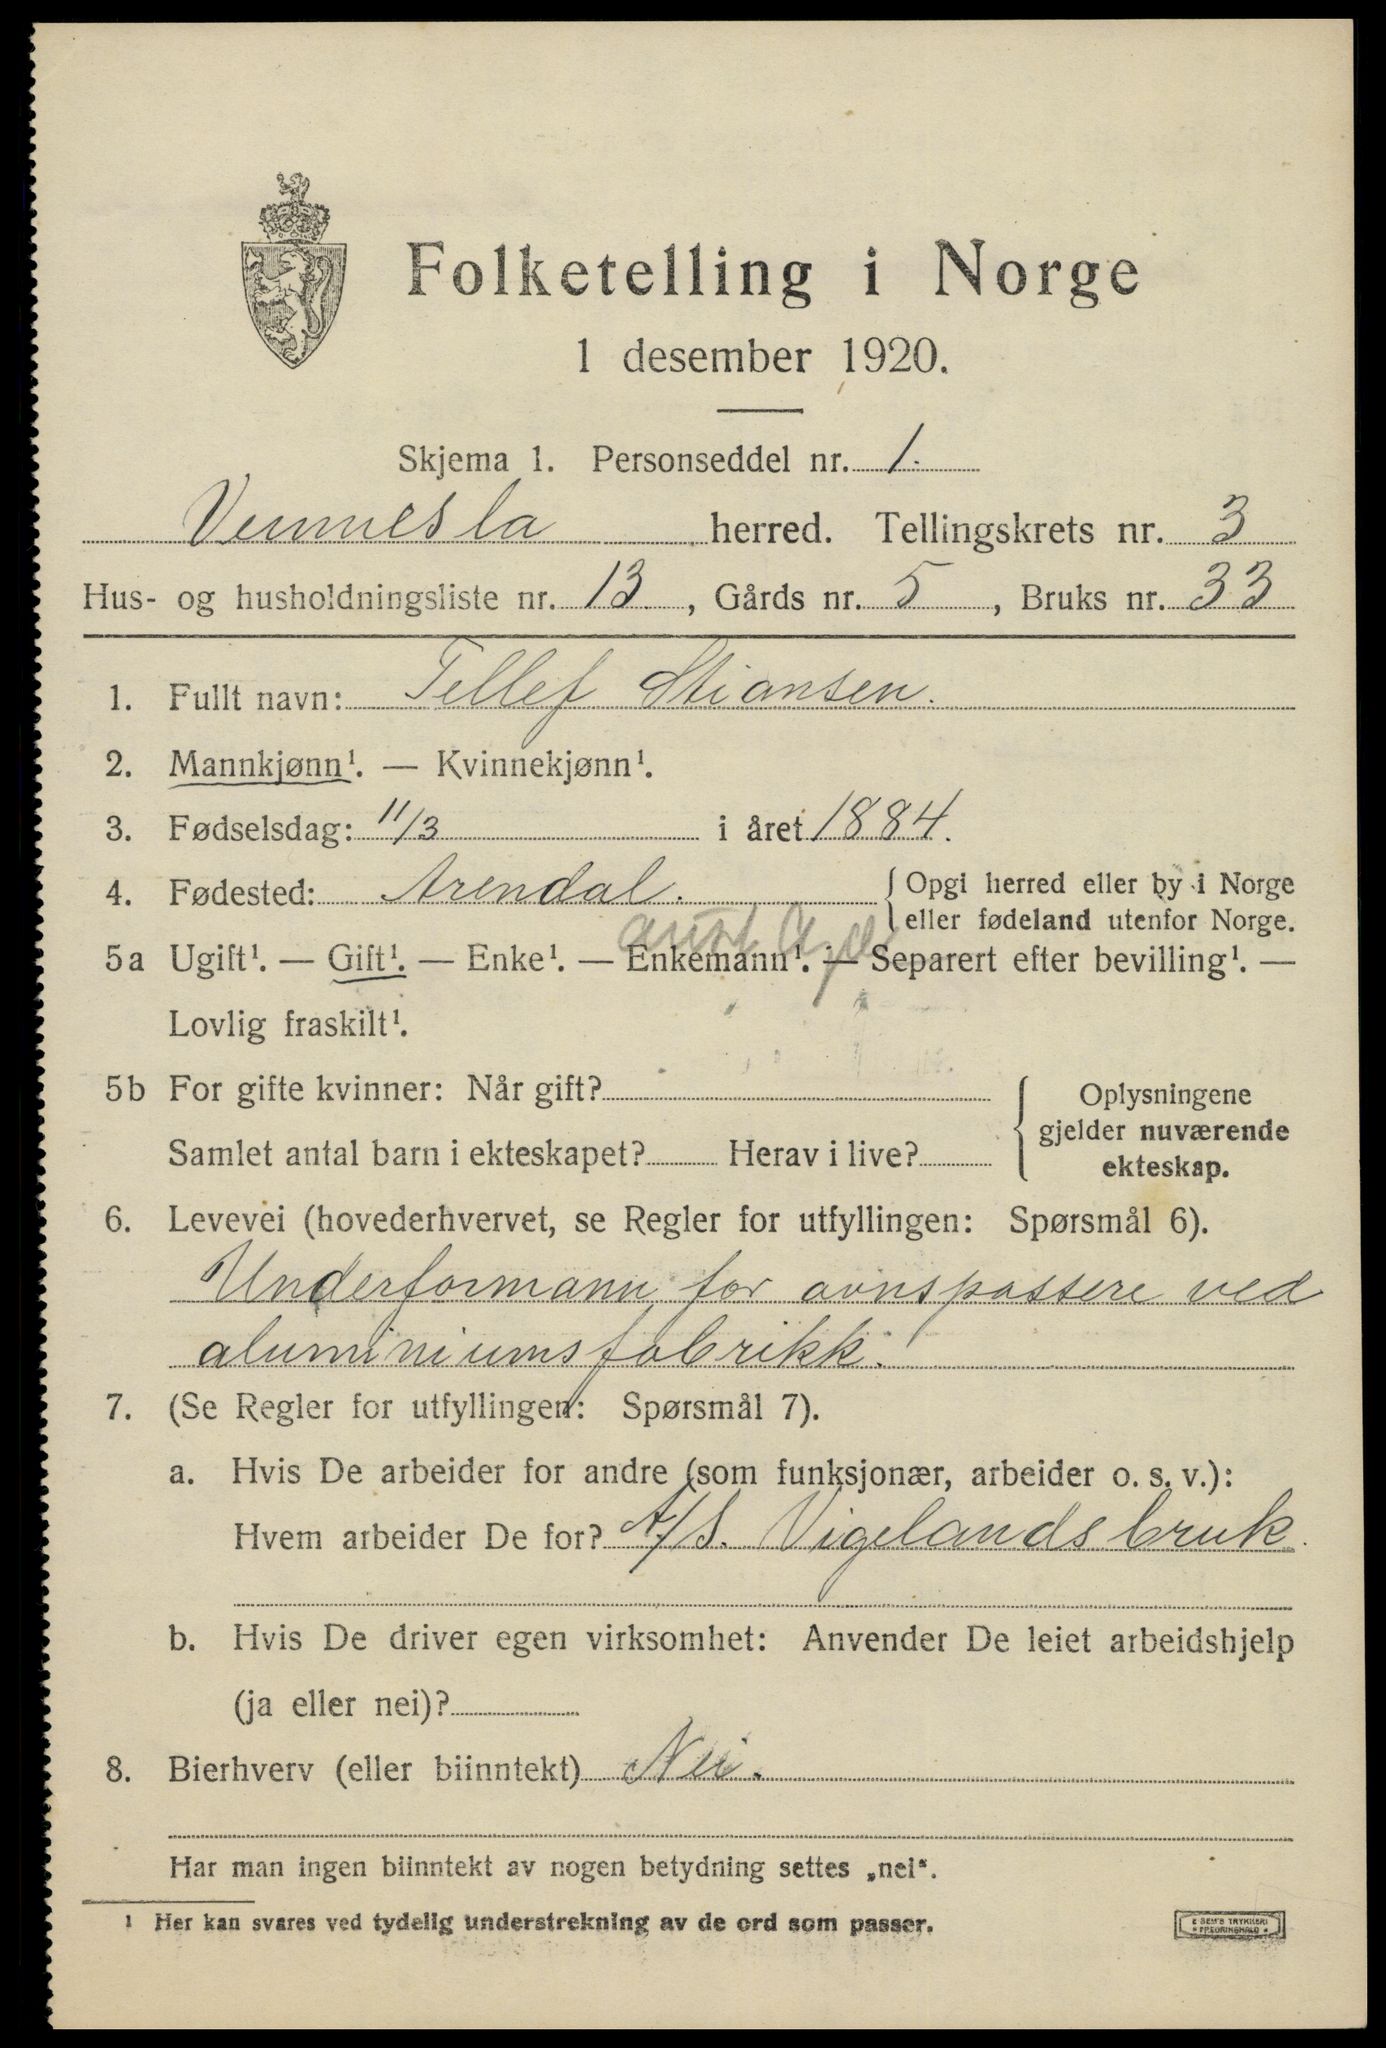 Folketelling i Norge
1 desember 1920.
Skjema 1. Personseddel nr. 1.
Vennesla herred. Tellingskrets nr. 3
Hus- og husholdningsliste nr. 13, Gårds nr. 5, Bruks nr. 33
1. Fullt navn: Tellef Stiansen.
2. Mannkjønn¹. — Kvinnekjønn¹.
3. Fødselsdag: 11/3 i året 1884.
4. Fødested: Arendal. { Opgi herred eller by i Norge
eller fødeland utenfor Norge.
5a Ugift¹. — Gift¹. — Enke¹. — Enkemann¹. — Separert efter bevilling¹. —
Lovlig fraskilt¹.
5b For gifte kvinner: Når gift? { Oplysningene
gjelder nuværende
Samlet antal barn i ekteskapet? Herav i live? ekteskap.
6. Levevei (hovederhvervet, se Regler for utfyllingen: Spørsmål 6).
Underformann for ovnspassere ved
aluminiumsfabrikk.
7. (Se Regler for utfyllingen: Spørsmål 7).
a. Hvis De arbeider for andre (som funksjonær, arbeider o. s. v.):
Hvem arbeider De for? A/S. Vigelandsbruk.
b. Hvis De driver egen virksomhet: Anvender De leiet arbeidshjelp
(ja eller nei)?
8. Bierhverv (eller biinntekt) Nei.
Har man ingen biinntekt av nogen betydning settes „nei“.
¹ Her kan svares ved tydelig understrekning av de ord som passer.
E SEM'S TRYKKERI
FREDRIKSHALD